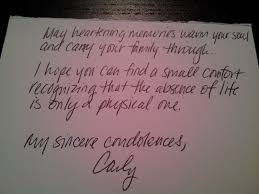 May heartening memories warm your soul
and carry your family through..
I hope you can find a small comfort
recognizing that the absence of life
is only a physical one.
My sincere condolences,
Carly